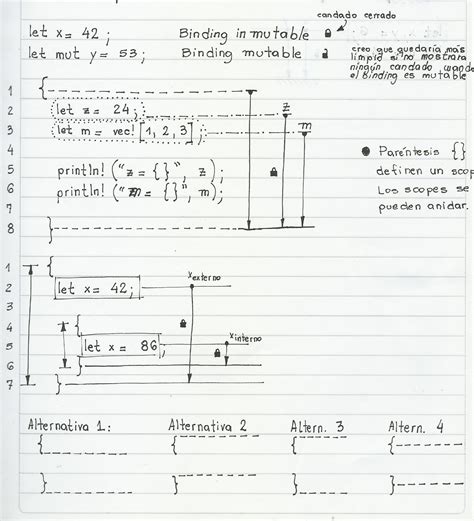 candado cerrado
let x= 42 ; Binding inmutable
let mut y= 53; Binding mutable
creo que quedaría más
limpio si no mostrara
ningún candado
el Binding es mutable
1 {
2 let z = 24 ; z
3 let m = vec! [1, 2, 3] ; m
4
5 println! ("z = {}", z);
6 println! ("m = {}", m);
7
8 }
● Paréntesis {}
definen un scop
Los scopes se
pueden anidar.
1 {
2 let x= 42; x externo
3
4 {
5 let x = 86; x interno
6 }
7 }
Alternativa 1: Alternativa 2 Altern. 3 Altern. 4
{ { { {
} } } }